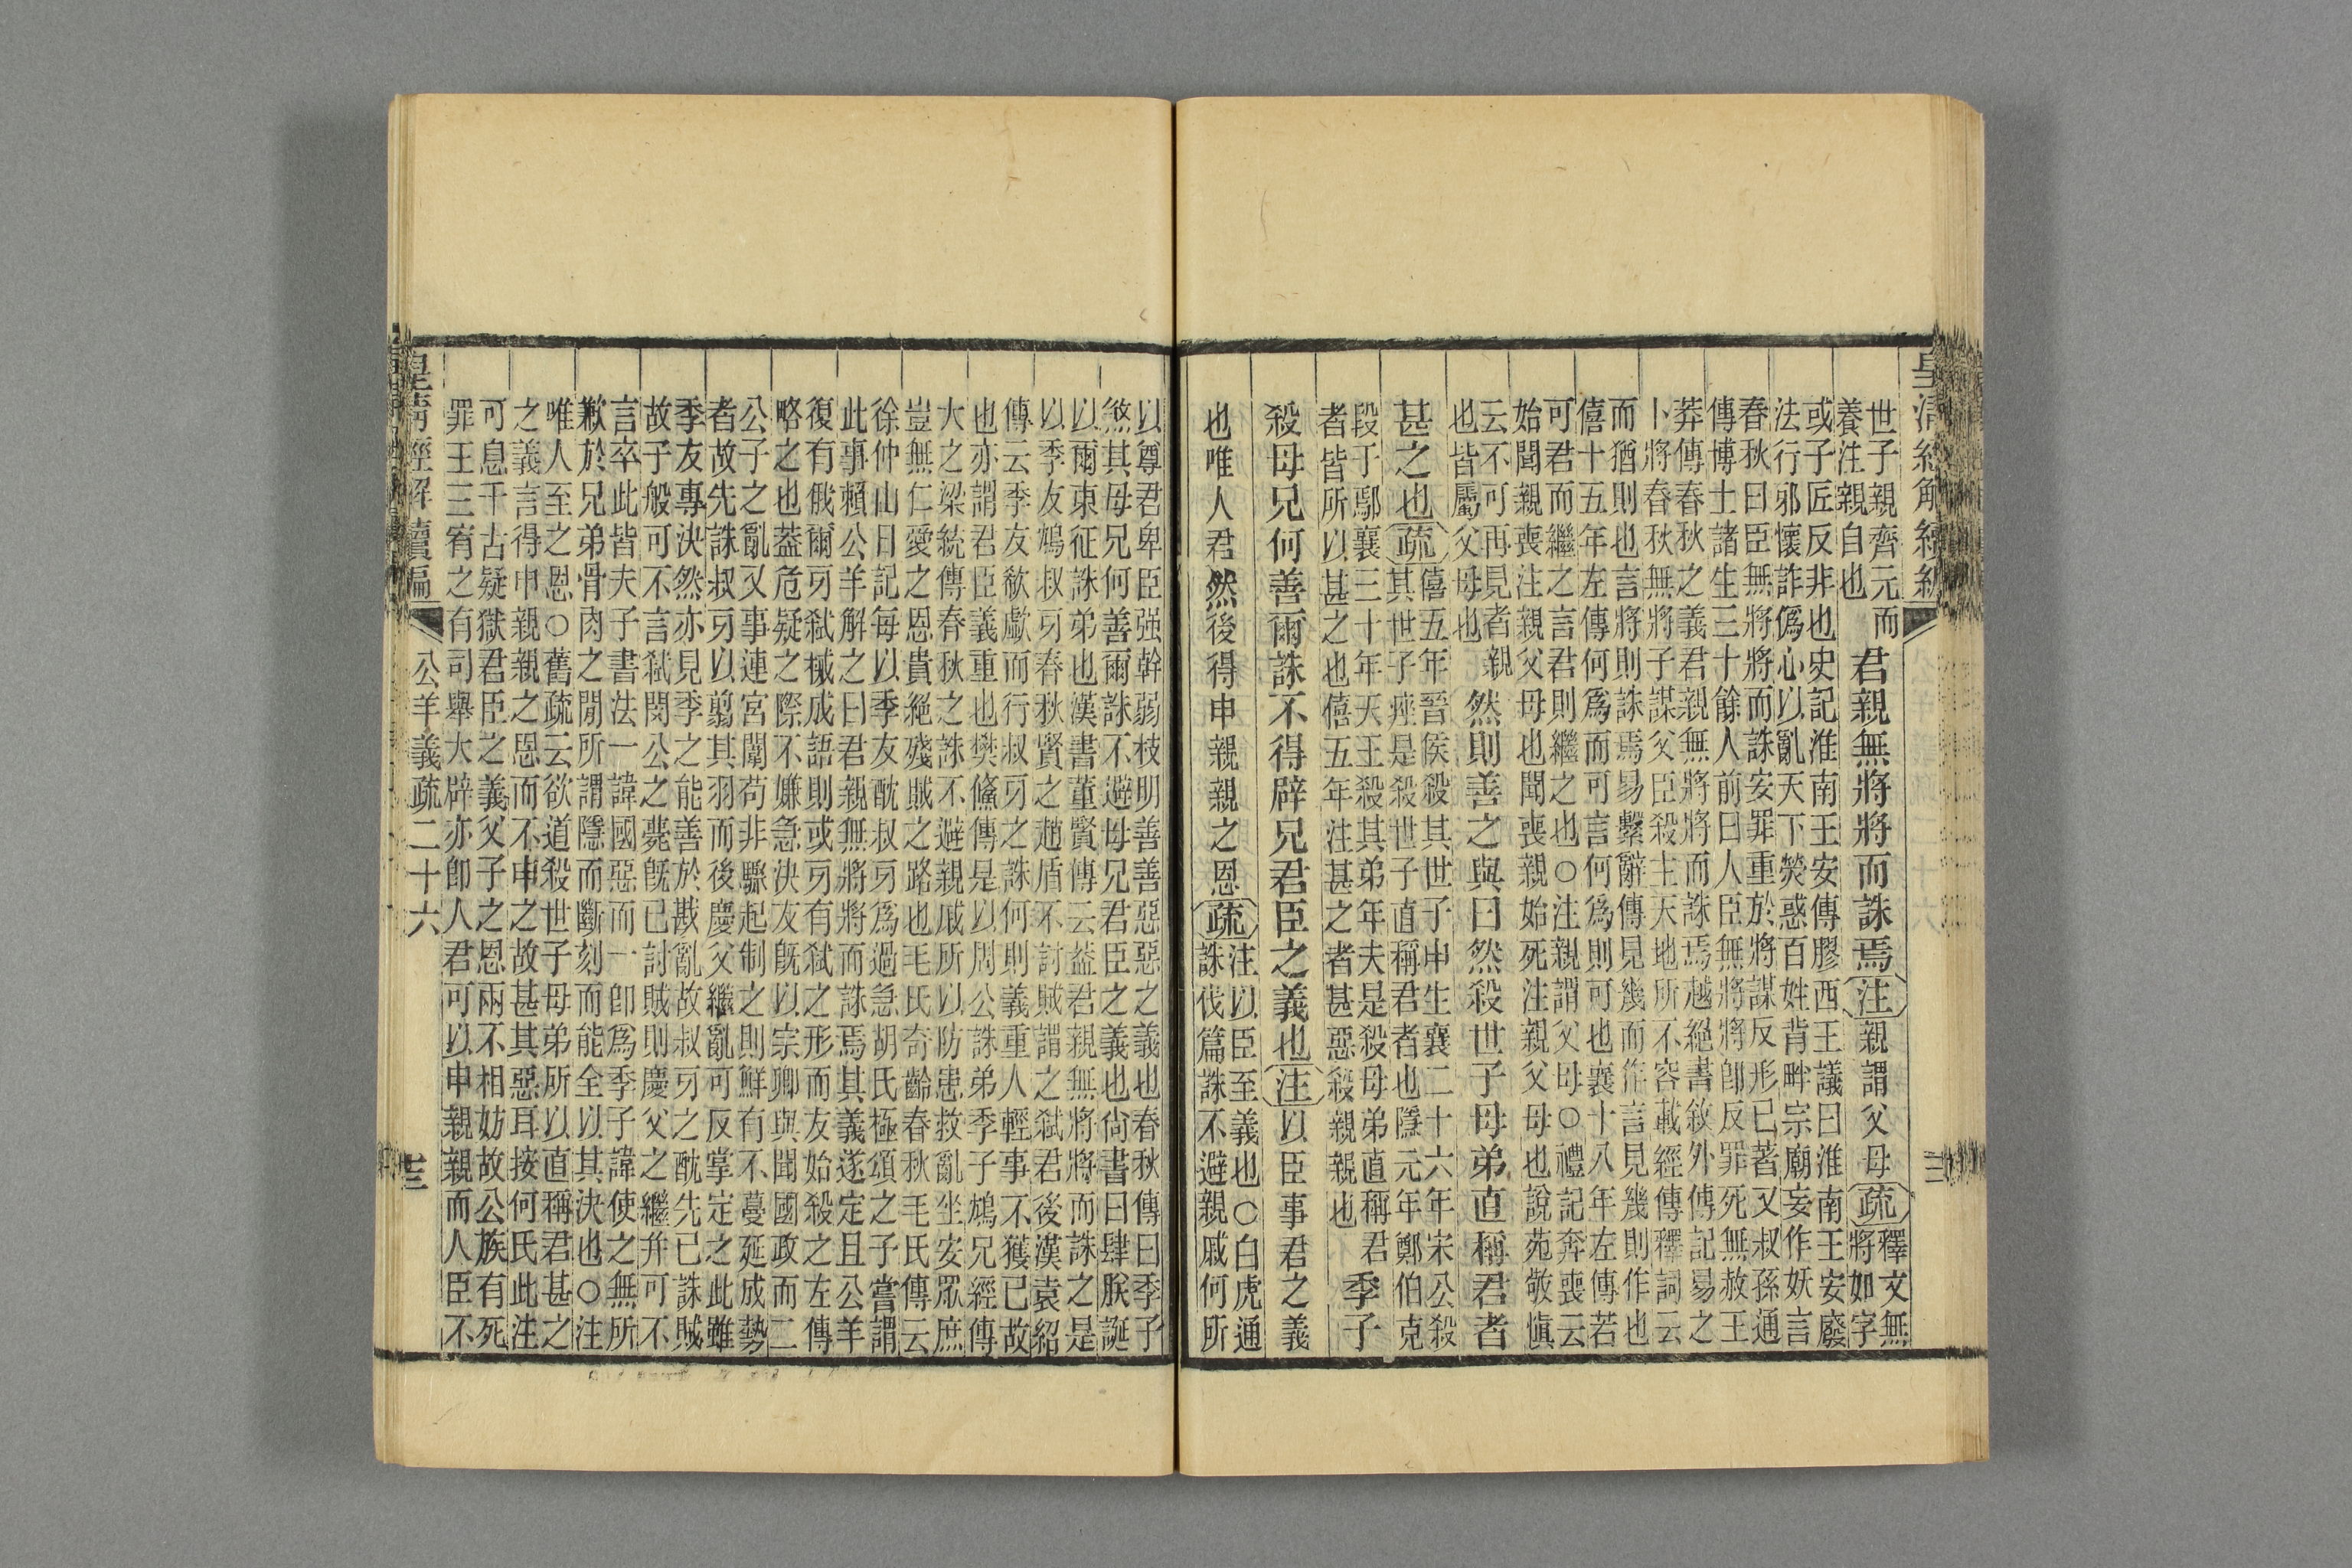 皇清經解續編
世子親齊元而
養注親自也
君親無將將而誅焉注親謂父母疏釋文無
將如字
或子匠反非也史記淮南王安傳膠西王議曰淮南王安廢
法行邪懷詐僞心以亂天下熒惑百姓背畔宗廟妄作妖言
春秋曰臣無將將而誅安罪重於將謀反形已著又叔孫通
傳博士諸生三十餘人前曰人臣無將將卽反罪死無赦王
莽傳春秋之義君親無將將而誅焉越絕書敘外傳記易之
卜將春秋無將子謀父臣殺主天地所不容載經傳釋詞云
而猶則也言將則誅焉易繫辭傳見幾而作言見幾則作也
僖十五年左傳何爲而可言何爲則可也襄十八年左傳若
可君而繼之言君則繼之也○注親謂父母○禮記奔喪云
始聞親喪注親父母也聞喪親始死注親父母也說苑敬愼
云不可再見者親
也皆屬父母也
然則善之與曰然殺世子母弟直稱君者
甚之也疏僖五年晉侯殺其世子申生襄二十六年宋公殺
其世子痤是殺世子直稱君者也隱元年鄭伯克
段于鄢襄三十年天王殺其弟年夫是殺母弟直稱君
者皆所以甚之也僖五年注甚之者甚惡殺親親也
季子
殺母兄何善爾誅不得辟兄君臣之義也注以臣事君之義
也唯人君然後得申親親之恩疏注以臣至義也○白虎通
誅伐篇誅不避親戚何所
以尊君卑臣强幹弱枝明善善惡惡之義也春秋傳曰季子
煞其母兄何善爾誅不避母兄君臣之義也尙書曰肆朕誕
以爾東征誅弟也漢書董賢傳云蓋君親無將將而誅之是
以季友鴆叔牙春秋賢之趙盾不討賊謂之弒君後漢袁紹
傳云季友欷歔而行叔牙之誅何則義重人輕事不獲已故
也亦謂君臣義重也樊儵傳是以周公誅弟季子鴆兄經傳
大之梁統傳春秋之誅不避親戚所以防患救亂坐安眾庶
豈無仁愛之恩貴絕殘賊之路也毛氏奇齡春秋毛氏傳云
徐仲山日記每以季友酖叔牙爲過急胡氏極頌之子嘗謂
此事賴公羊解之曰君親無將將而誅焉其義遂定且公羊
復有俄爾牙弒械成語則或牙有弒之形而友始殺之左傳
略之也蓋危疑之際不嫌急決友旣以宗卿與聞國政而二
公子之亂又事連宮闈苟非驟起制之則鮮有不蔓延成勢
者故先誅叔牙以翦其羽而後慶父繼亂可反掌定之此雖
季友專決然亦見季之能善於戡亂故叔牙之酖先已誅賊
故子般可不言弒閔公之薨旣已討賊則慶父之繼弁可不
言卒此皆夫子書法一諱國惡而一卽爲季子諱使之無所
歉於兄弟骨肉之閒所謂隱而斷刻而能全以其決也○注
唯人至之恩○舊疏云欲道殺世子母弟所以直稱君甚之
之義言得申親親之恩而不申之故甚其惡耳按何氏此注
可息千古疑獄君臣之義父子之恩兩不相妨故公族有死
罪王三宥之有司舉大辟亦卽人君可以申親親而人臣不
皇清經解續編 公羊義疏二十六